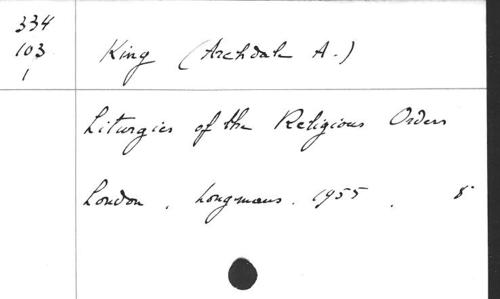 334
103
1
King (Archdale A.)
Liturgies of the Religious Orders
London, Longmans. 1955. 8°